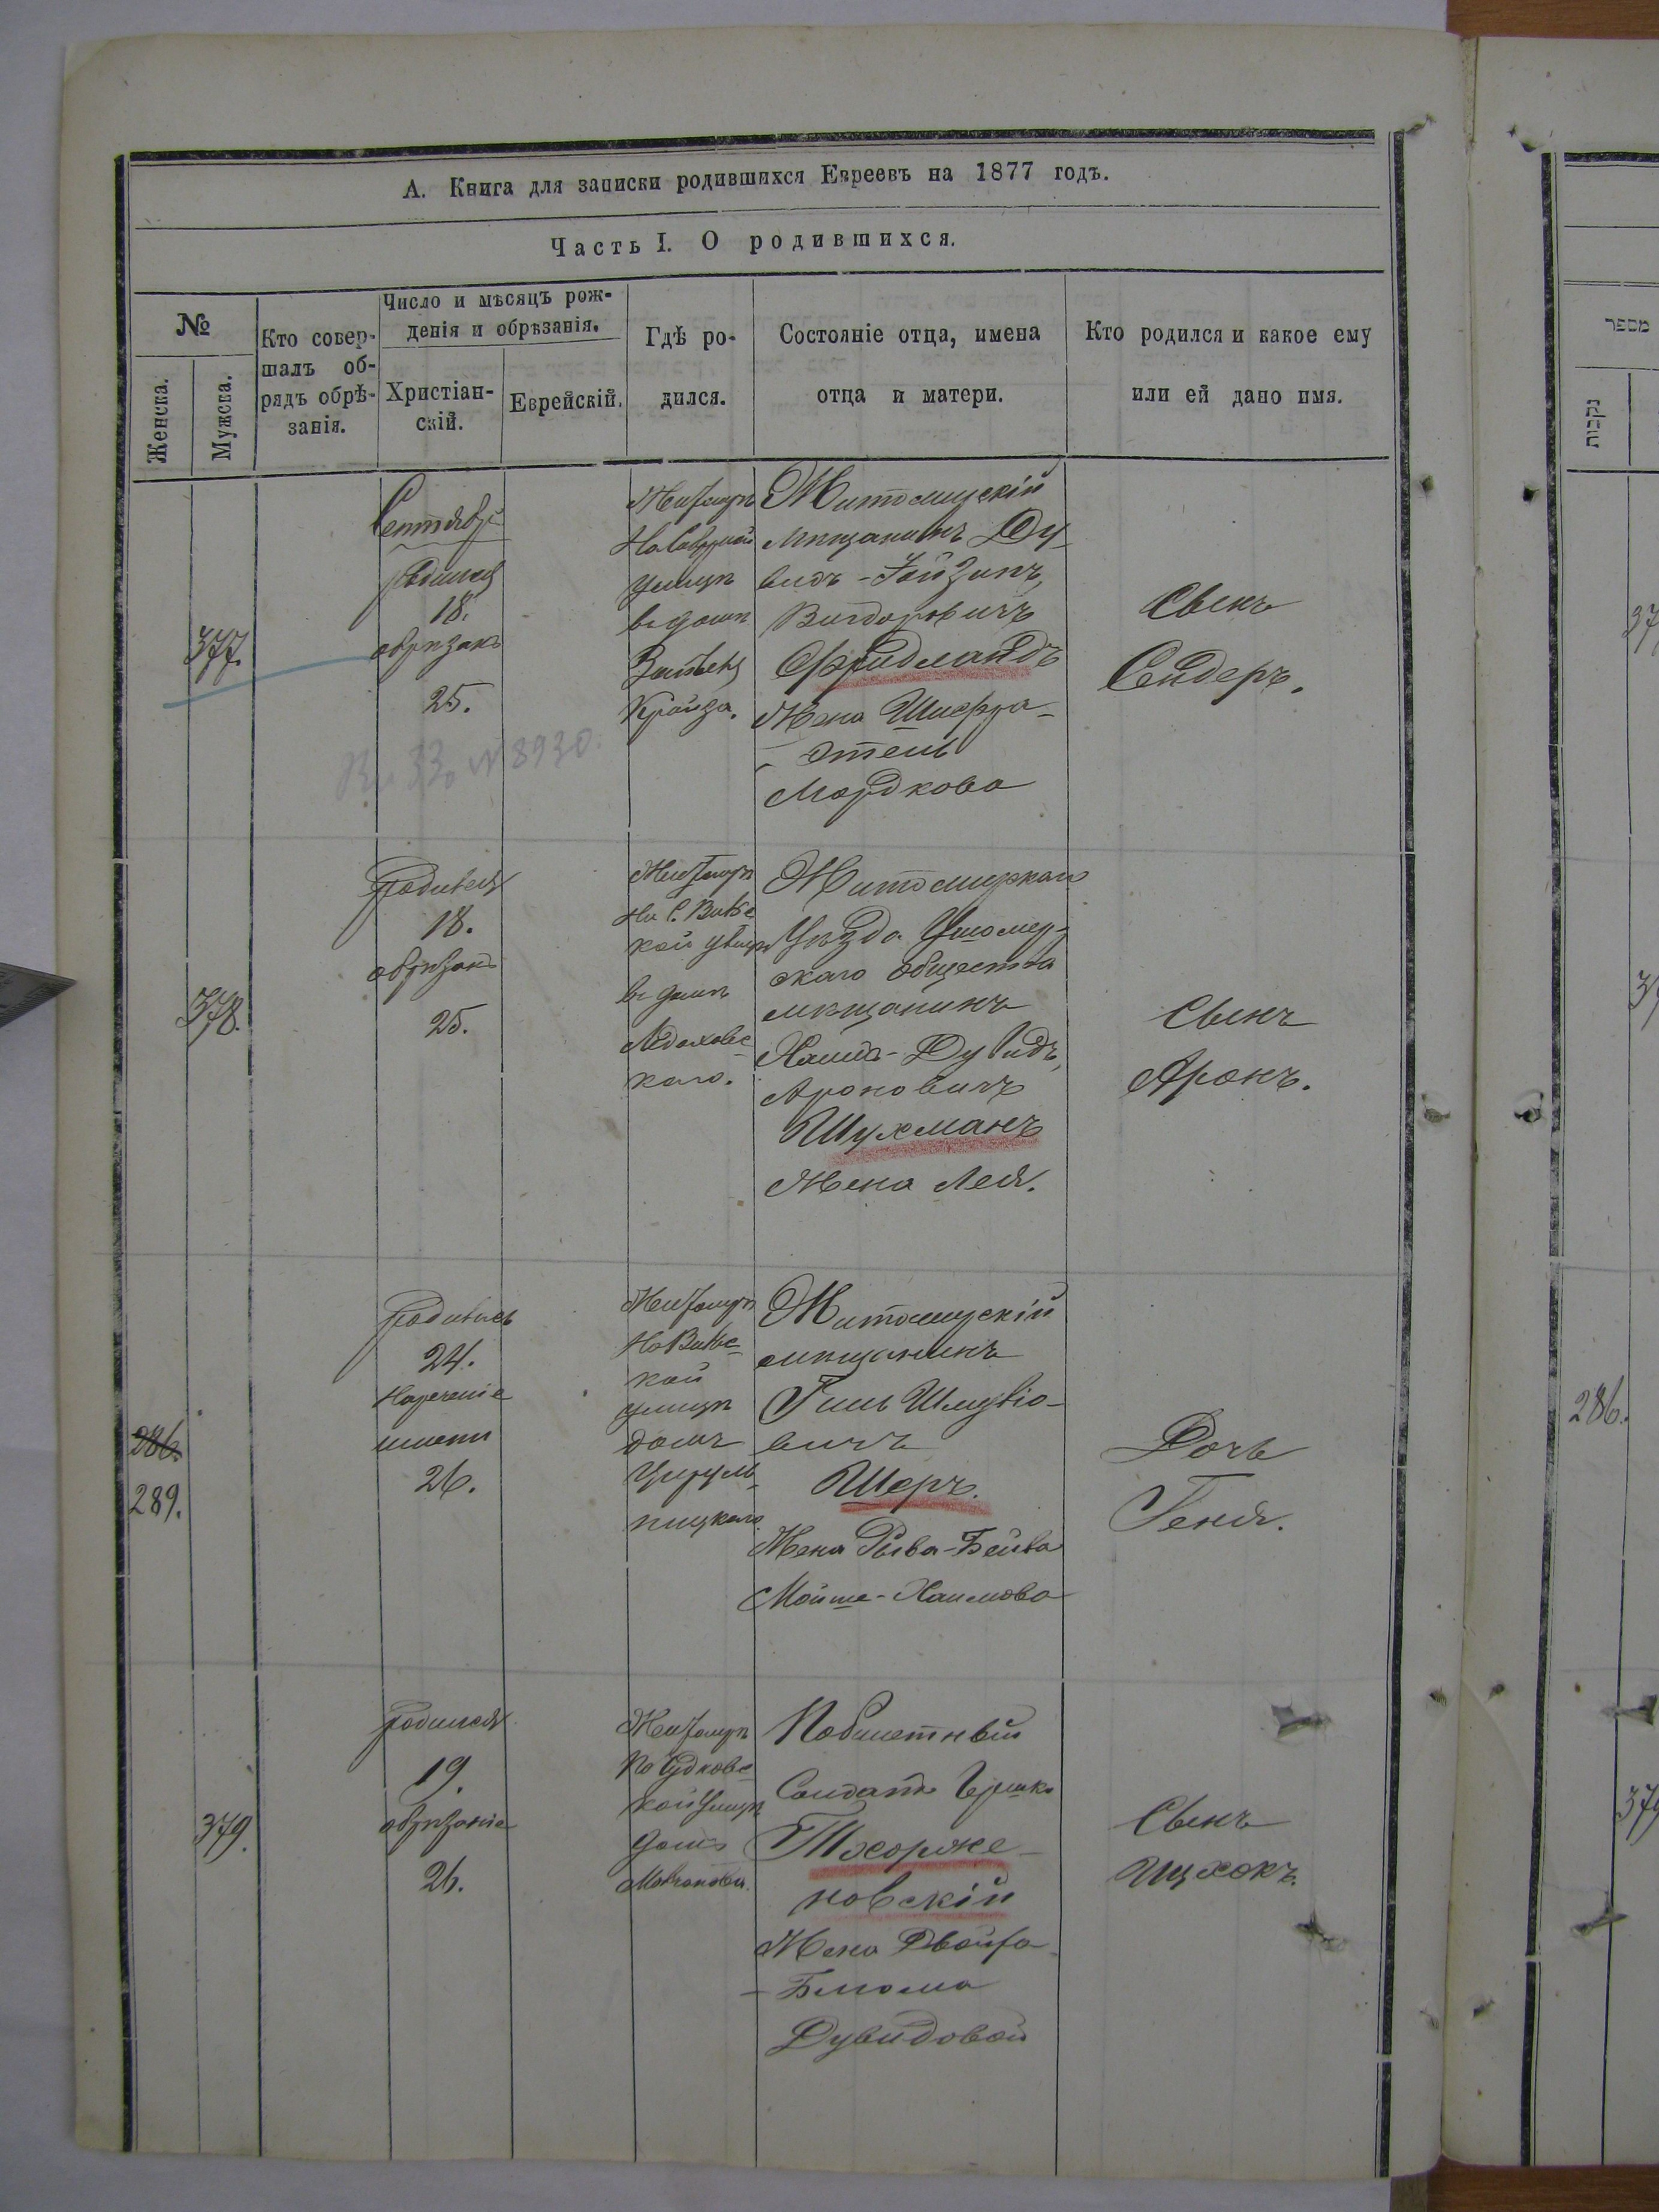 А. Книга для записки родившихся Евреевъ на 1877 годъ.
Часть I. О родившихся.
№
Женска.
Мужска.
Кто совер-
шалъ об-
рядъ обрѣ-
занія.
Число и мѣсяцъ рож-
денія и обрѣзанія.
Христіан-
скій.
Еврейскій.
Гдѣ ро-
дился.
Состояніе отца, имена
отца и матери.
Кто родился и какое ему
или ей дано имя.
377.
Сентябрь
родился
18.
обрѣзанъ
25.
№ 8930.
Житомірѣ
улицѣ
въ домѣ
Житомирскій
мѣщанинъ Ду-
видъ-
Вигдоровичъ
Фридландъ
Жена Шифра-
-Этель
Мордкова
Сынъ
Сендеръ.
378.
Родился
18.
обрѣзанъ
25.
Житомірѣ
кой улицѣ
въ домѣ
каго.
Житомирскаго
Уѣзда Ушомер-
скаго общества
мѣщанинъ
Хаимъ-Дувидъ
Ароновичъ
Шухманъ
Жена Лея.
Сынъ
Аронъ.
286.
289.
Родилась
24.
Нареченіе
имени
26.
Житомірѣ
кой
улицѣ
домъ
Житомирскій
мѣщанинъ
Шмуліо-
вичъ
Шеръ.
Жена Рыва-Бейла
Мойше-Хаимова
Дочь
Геня.
379.
родился
19.
обрѣзаніе
26.
Житомірѣ
По Чудновс-
кой улицѣ
домъ
Мовчанова.
Кобилетный
Солдатъ Гершко
Тхорже-
новскій
Жена Двойра-
-Блюма
Дувидовой
Сынъ
Ицхокъ.
מספר
נקבות
286.